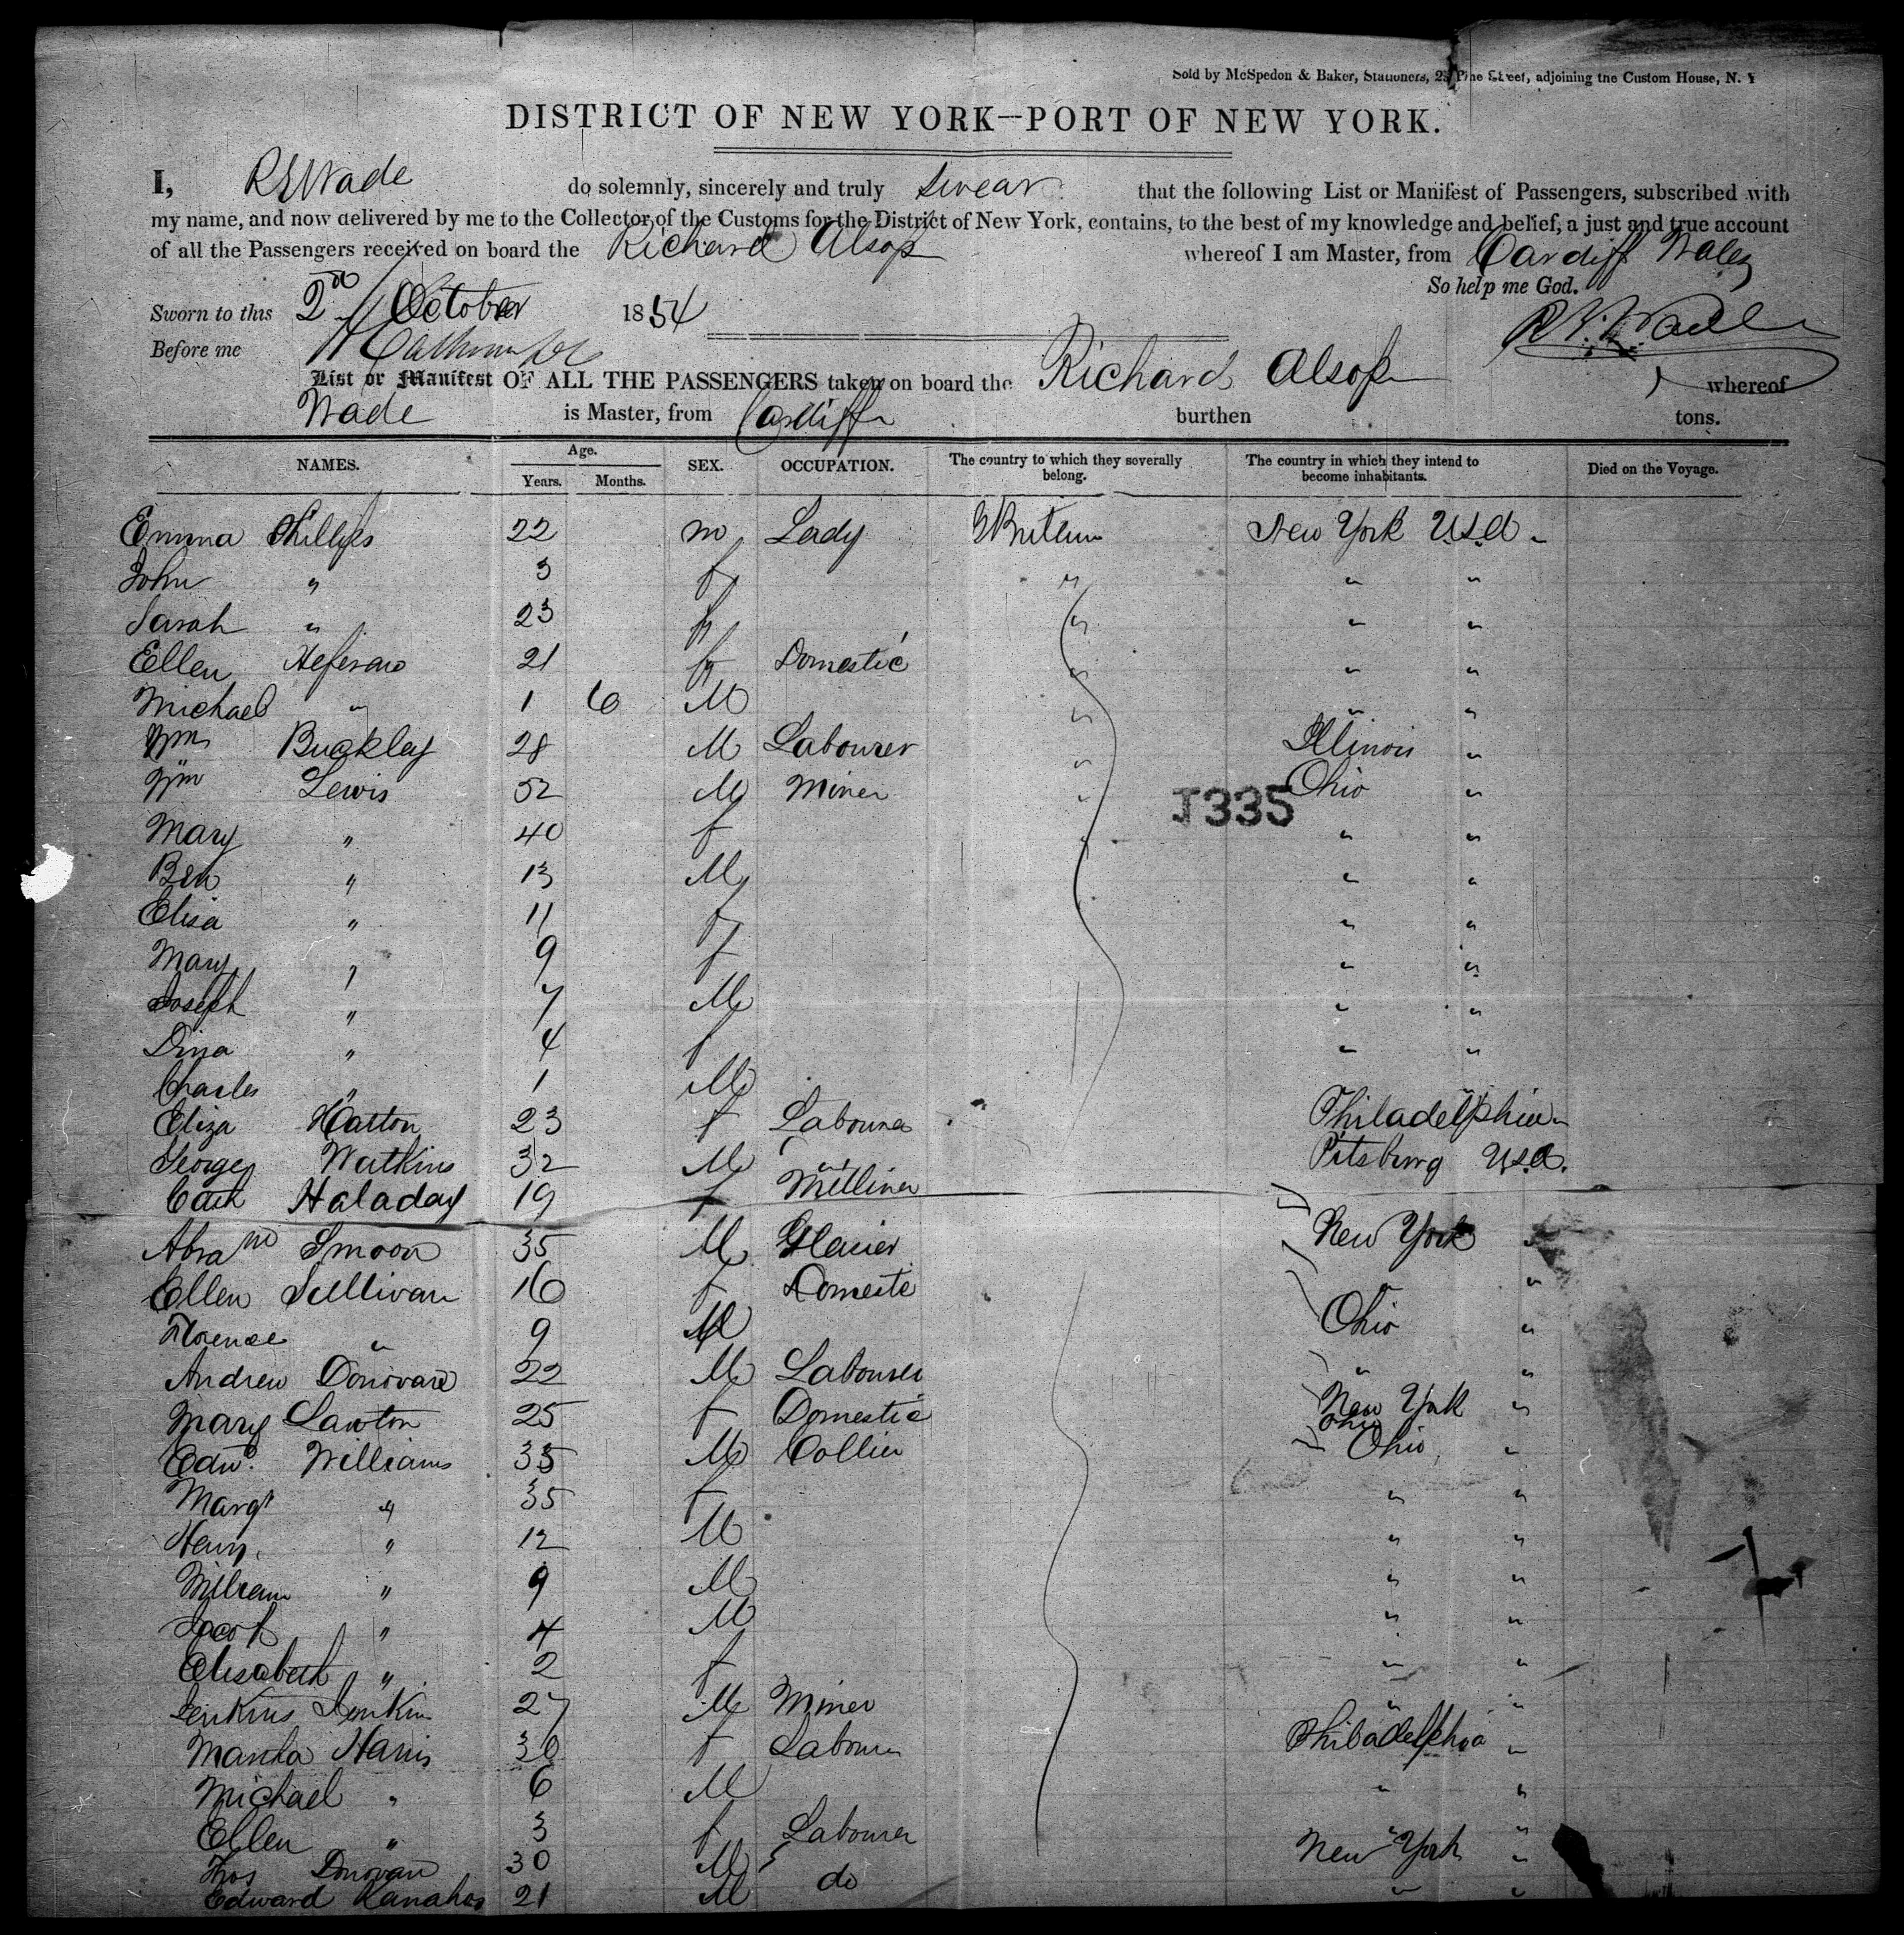 Sold by McSpedon & Baker, Stationers, 25 Pine Street, adjoining the Custom House, N. Y
DISTRICT OF NEW YORK--PORT OF NEW YORK.
I, Wade do solemnly, sincerely and truly swear that the following List or Manifest of Passengers, subscribed with
my name, and now delivered by me to the Collector of the Customs for the District of New York, contains, to the best of my knowledge and belief, a just and true account
of all the Passengers received on board the Richard Alsop whereof I am Master, from Cardiff Wales
So help me God.
Sworn to this 2nd October 1854
Before me
Wade
List or Manifest OF ALL THE PASSENGERS taken on board the Richard Alsop whereof
Wade is Master, from Cardiff burthen tons.
NAMES. Age. Years. Months. SEX. OCCUPATION. The country to which they severally belong. The country in which they intend to become inhabitants. Died on the Voyage.
Emma Phillips 22 m Lady New York U.S.A.
John " 3 f " " "
Sarah " 23 f " " "
Ellen 21 f Domestic " " "
Michael " 1 6 M " " "
Wm Buckley 28 M Labourer " Illinois "
Wm Lewis 52 M Miner " Ohio "
J335
Mary " 40 f " " "
Ben " 13 M " "
Elisa " 11 f " "
Mary " 9 f " "
Joseph " 7 M " "
Dina " 4 f " "
Charles " 1 M
Eliza Hatton 23 f Labourer Philadelphia "
George Watkins 32 M " Pitsburg U.S.A.
Cath Haladay 19 f Milliner
Abram Smoon 35 M Glacier New York "
Ellen Sullivan 16 f Domestc "
Florence " 9 M Ohio "
Andrew Donovan 22 M Labourer " "
Mary Lawton 25 f Domestic New York "
Ohio
Edwd. Williams 35 M Collier Ohio "
Margt " 35 f " "
Henry " 12 M " "
William " 9 M " "
Jacob " 4 M " "
Elisabeth " 2 f " "
Jenkins Jenkin 27 M Miner " "
Martha Harris 30 f Labourer Philadelphia "
Michael " 6 M " "
Ellen " 3 f Labourer " "
Thos Donovan 30 M New York "
Edward 21 M do " "